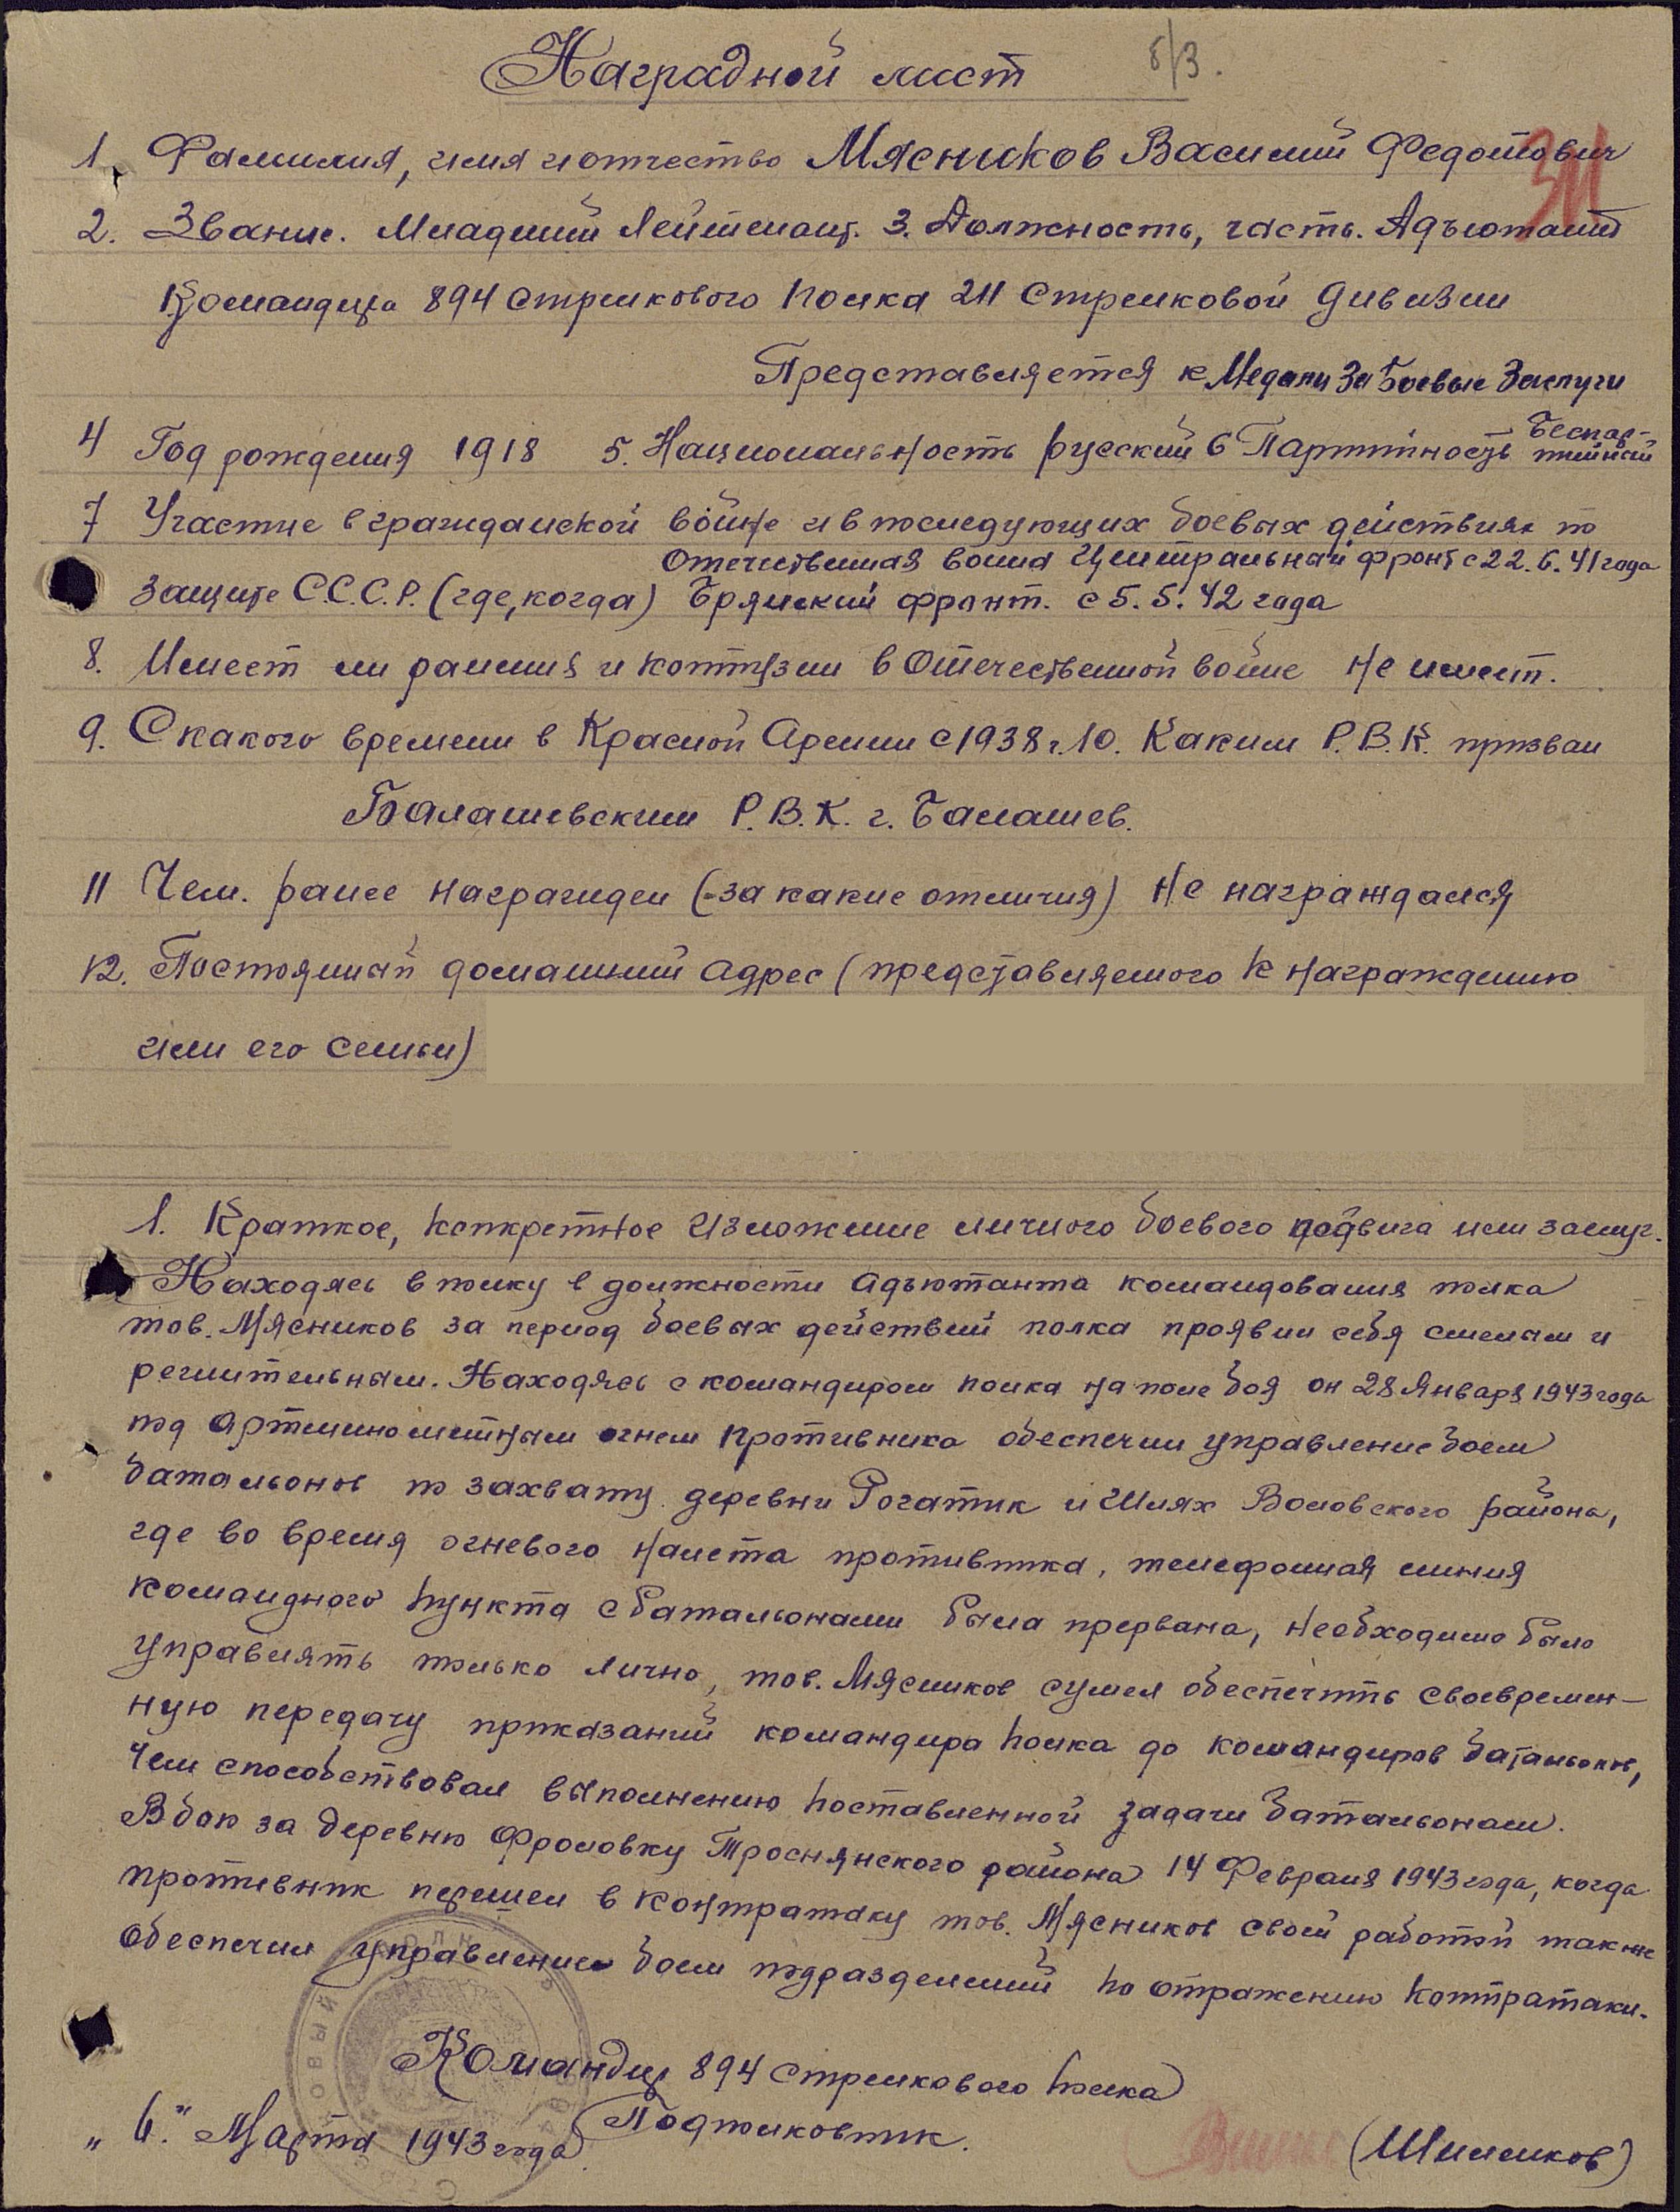 Наградной лист
б/з.
311
1. Фамилия, имя и отчество Мясников Василий Федотович
2. Звание. Младший Лейтенант. 3. Должность, часть. Адъютант
Командира 894 стрелкового полка 211 Стрелковой дивизии
Представляется к Медали За Боевые Заслуги
4 Год рождения 1918 5. Национальность русский 6 Партийность Беспар-
тийный
7 Участие в гражданской войне и в последующих боевых действиях по
Отечественная война Центральный фронт с 22.6.41 года
защите С.С.С.Р. (где, когда) Брянский фронт. с 5.5.42 года
8. Имеет ли ранения и контузии в Отечественной войне Не имеет.
9. С какого времени в Красной Армии с 1938 г. 10. Каким Р.В.К. призван
Балашевским Р.В.К. г. Балашев.
11 Чем. ранее награжден (за какие отличия) Не награждался
12. Постоянный домашний адрес (представляемого к награждению
или его семьи)
1. Краткое, конкретное изложение личного боевого подвига или заслуг.
Находясь в полку в должности адъютанта командования полка
тов. Мясников за период боевых действий полка проявил себя смелым и
решительным. Находясь с командиром полка на поле боя он 28 Января 1943 года
под артминометным огнем противника обеспечил управление боем
батальонов по захвату деревни Рогатик и Шлях Воловского района,
где во время огневого налета противника, телефонная линия
командного пункта с батальонами была прервана, необходимо было
управлять только лично, тов. Мясников сумел обеспечить своевремен-
ную передачу приказаний командира полка до командиров батальонов,
чем способствовал выполнению поставленной задачи батальонам.
В бою за деревню Фроловку Троснянского района 14 Февраля 1943 года, когда
противник перешел в контратаку тов. Мясников своей работой также
обеспечил управление боем подразделений по отражению контратаки.
Командир 894 стрелкового полка
Подполковник. (Шилмиков)
„6." Марта 1943 года